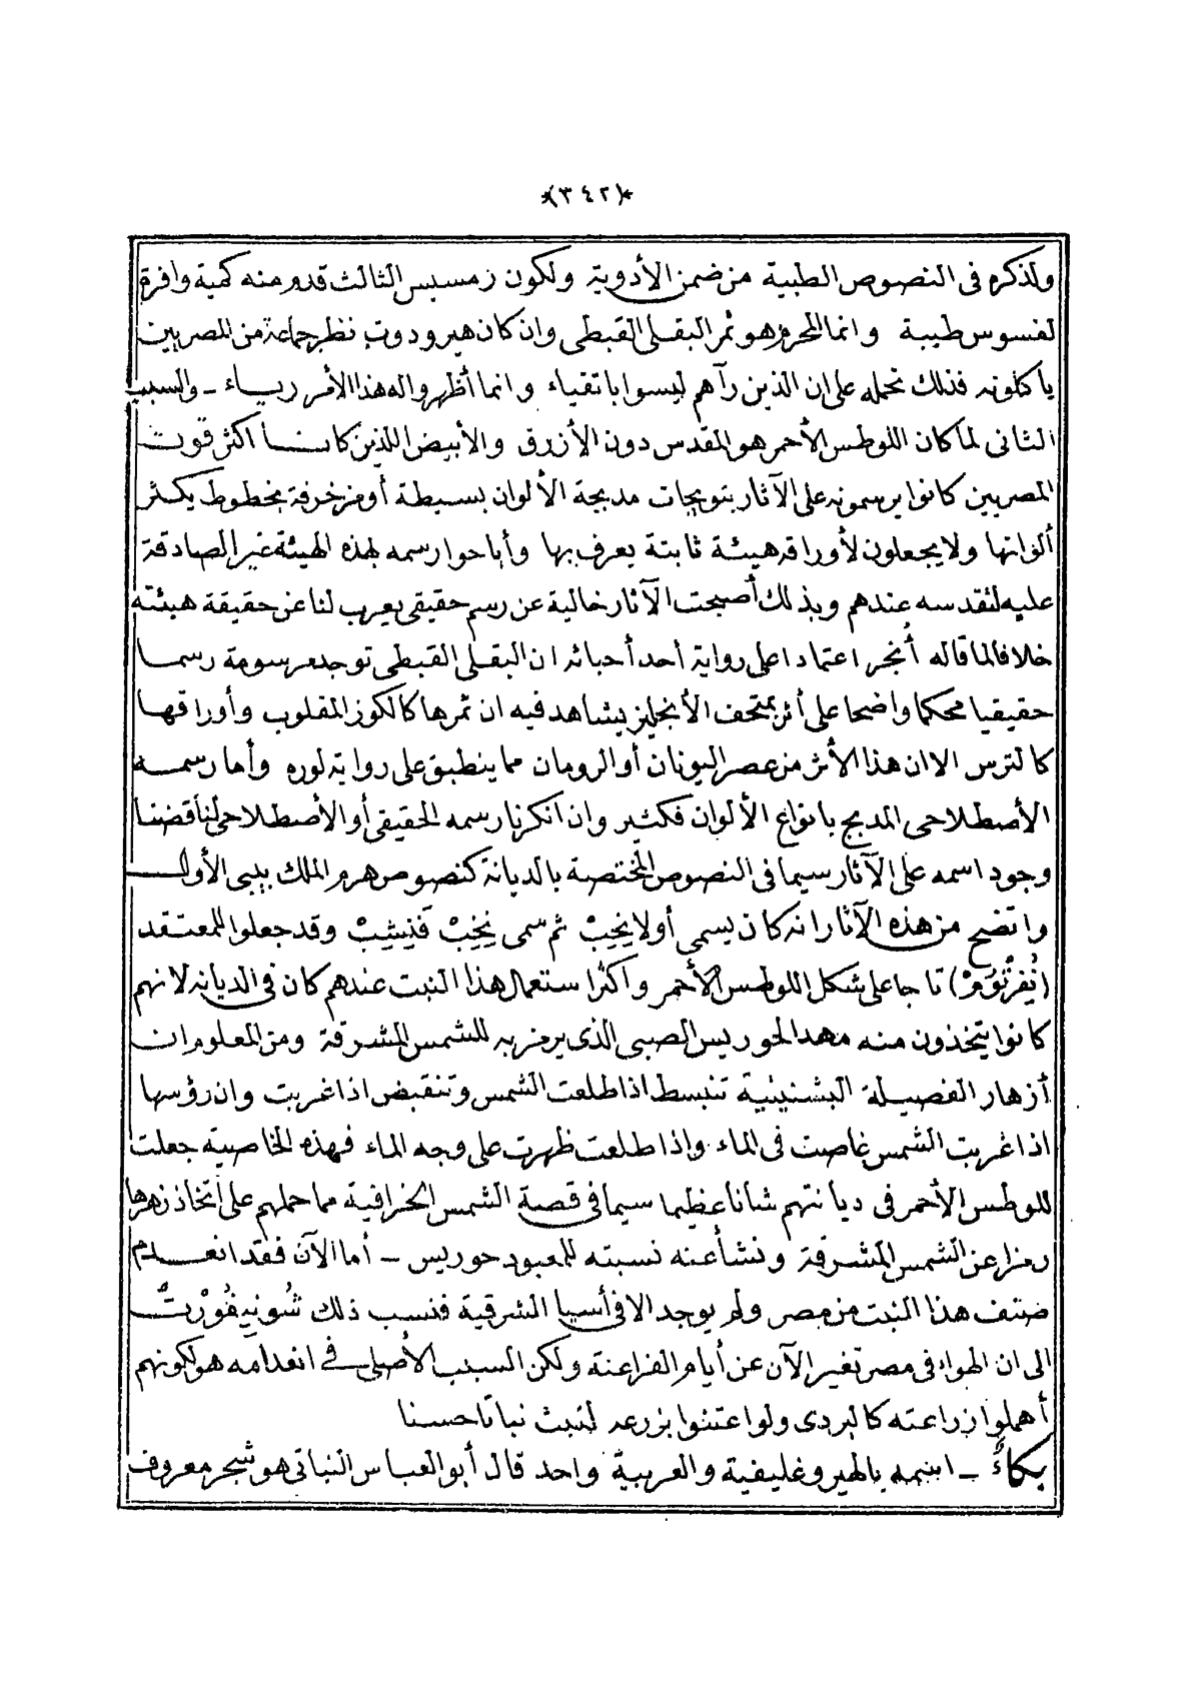 *(٣٤٢)*
ولذكره فى النصوص الطبية من ضمن الأدوية ولكون رمسيس الثالث قدم منه كمية وافرة
لقسوس طيبة وانما المحرم هو ثمر البقلى القبطى وان كان هيرودوت نظر جماعة من المصريين
يأكلونه فذلك نحمله على ان الذين رآهم ليسوا باتقياء وانما أظهروا له هذا الأمر رياء - والسبب
الثانى لما كان اللوطس الأحمر هو المقدس دون الأزرق والأبيض اللذين كانا أكثر قوت
المصريين كانوا يرسمونه على الآثار بتويجات مدبجة الألوان بسيطة أو مزخرفة بخطوط يكثر
ألوانها ولا يجعلون لأوراقه هيئة ثابتة يعرف بها وأباحوا رسمه بهذه الهيئة غير الصادقة
عليه لتقدسه عندهم وبذلك أصبحت الآثار خالية عن رسم حقيقى يعرب لنا عن حقيقة هيئته
خلافا لما قاله أنجر اعتمادا على رواية أحد أحبائه ان البقلى القبطى توجد مرسومة رسما
حقيقيا محكما واضحا على أثر بمتحف الأنجليز يشاهد فيه ان ثمرها كالكوز المقلوب وأوراقها
كالترس الا ان هذا الأثر من عصر اليونان أو الرومان مما ينطبق على رواية لوره وأما رسمه
الأصطلاحى المدبج بانواع الألوان فكثير وان انكرنا رسمه الحقيقى أو الأصطلاحى لناقضنا
وجود اسمه على الآثار سيما فى النصوص المختصة بالديانة كنصوص هرم الملك بيبى الأول
واتضح من هذه الآثار انه كان يسمى أولا يخب ثم سمى نخب فنشب وقد جعلوا للمعتقد
(نفرتوم) تاجا على شكل اللوطس الأحمر واكثر استعمال هذا النبت عندهم كان فى الديانه لانهم
كانوا يتخذون منه مهد الحوريس الصبى الذى يرمز به للشمس المشرقة ومن المعلوم ان
أزهار الفصيلة البشنينية تنبسط اذا طلعت الشمس وتنقبض اذا غربت وان رؤسها
اذا غربت الشمس غاصت فى الماء واذا طلعت ظهرت على وجه الماء فهذه الخاصية جعلت
للوطس الأحمر فى ديانتهم شانا عظيما سيما فى قصة الشمس الخرافية مما حملهم على اتخاذ زهرها
رمزا عن الشمس المشرقة ونشأ عنه نسبته للمعبود حوريس - أما الآن فقد انعدم
صنف هذا النبت من مصر ولم يوجد الا فى أسيا الشرقية فنسب ذلك شونيفورت
الى ان الهواء فى مصر تغير الآن عن أيام الفراعنة ولكن السبب الأصلى فى انعدامه هو لكونهم
أهملوا زراعته كالبردى ولو اعتنوا بزرعه لنبت نباتا حسنا
بكاء - اسمه بالهيروغليفية والعربية واحد قال أبو العباس النباتى هو شجر معروف